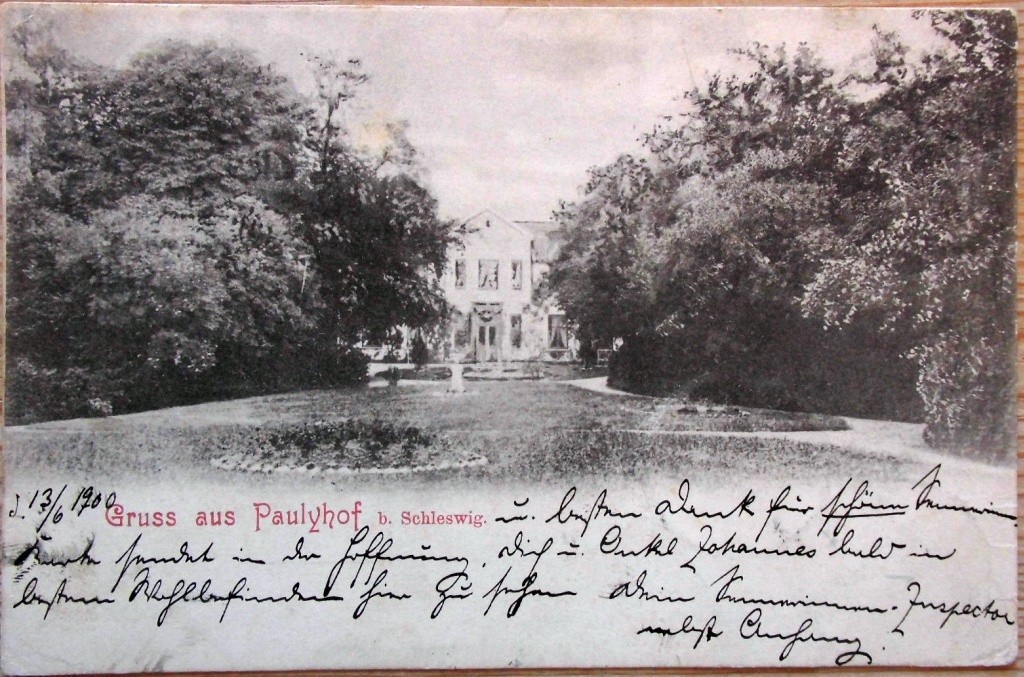 d. 13/6 1900
Gruss aus Paulyhof b. Schleswig. u. besten Dank für schöne
Karte sendet in der Hoffnung, Dich u. Onkel Johannes bald in
bestem Wohlbefinden hier zu sehen Dein Inspector
nebst Anhang.